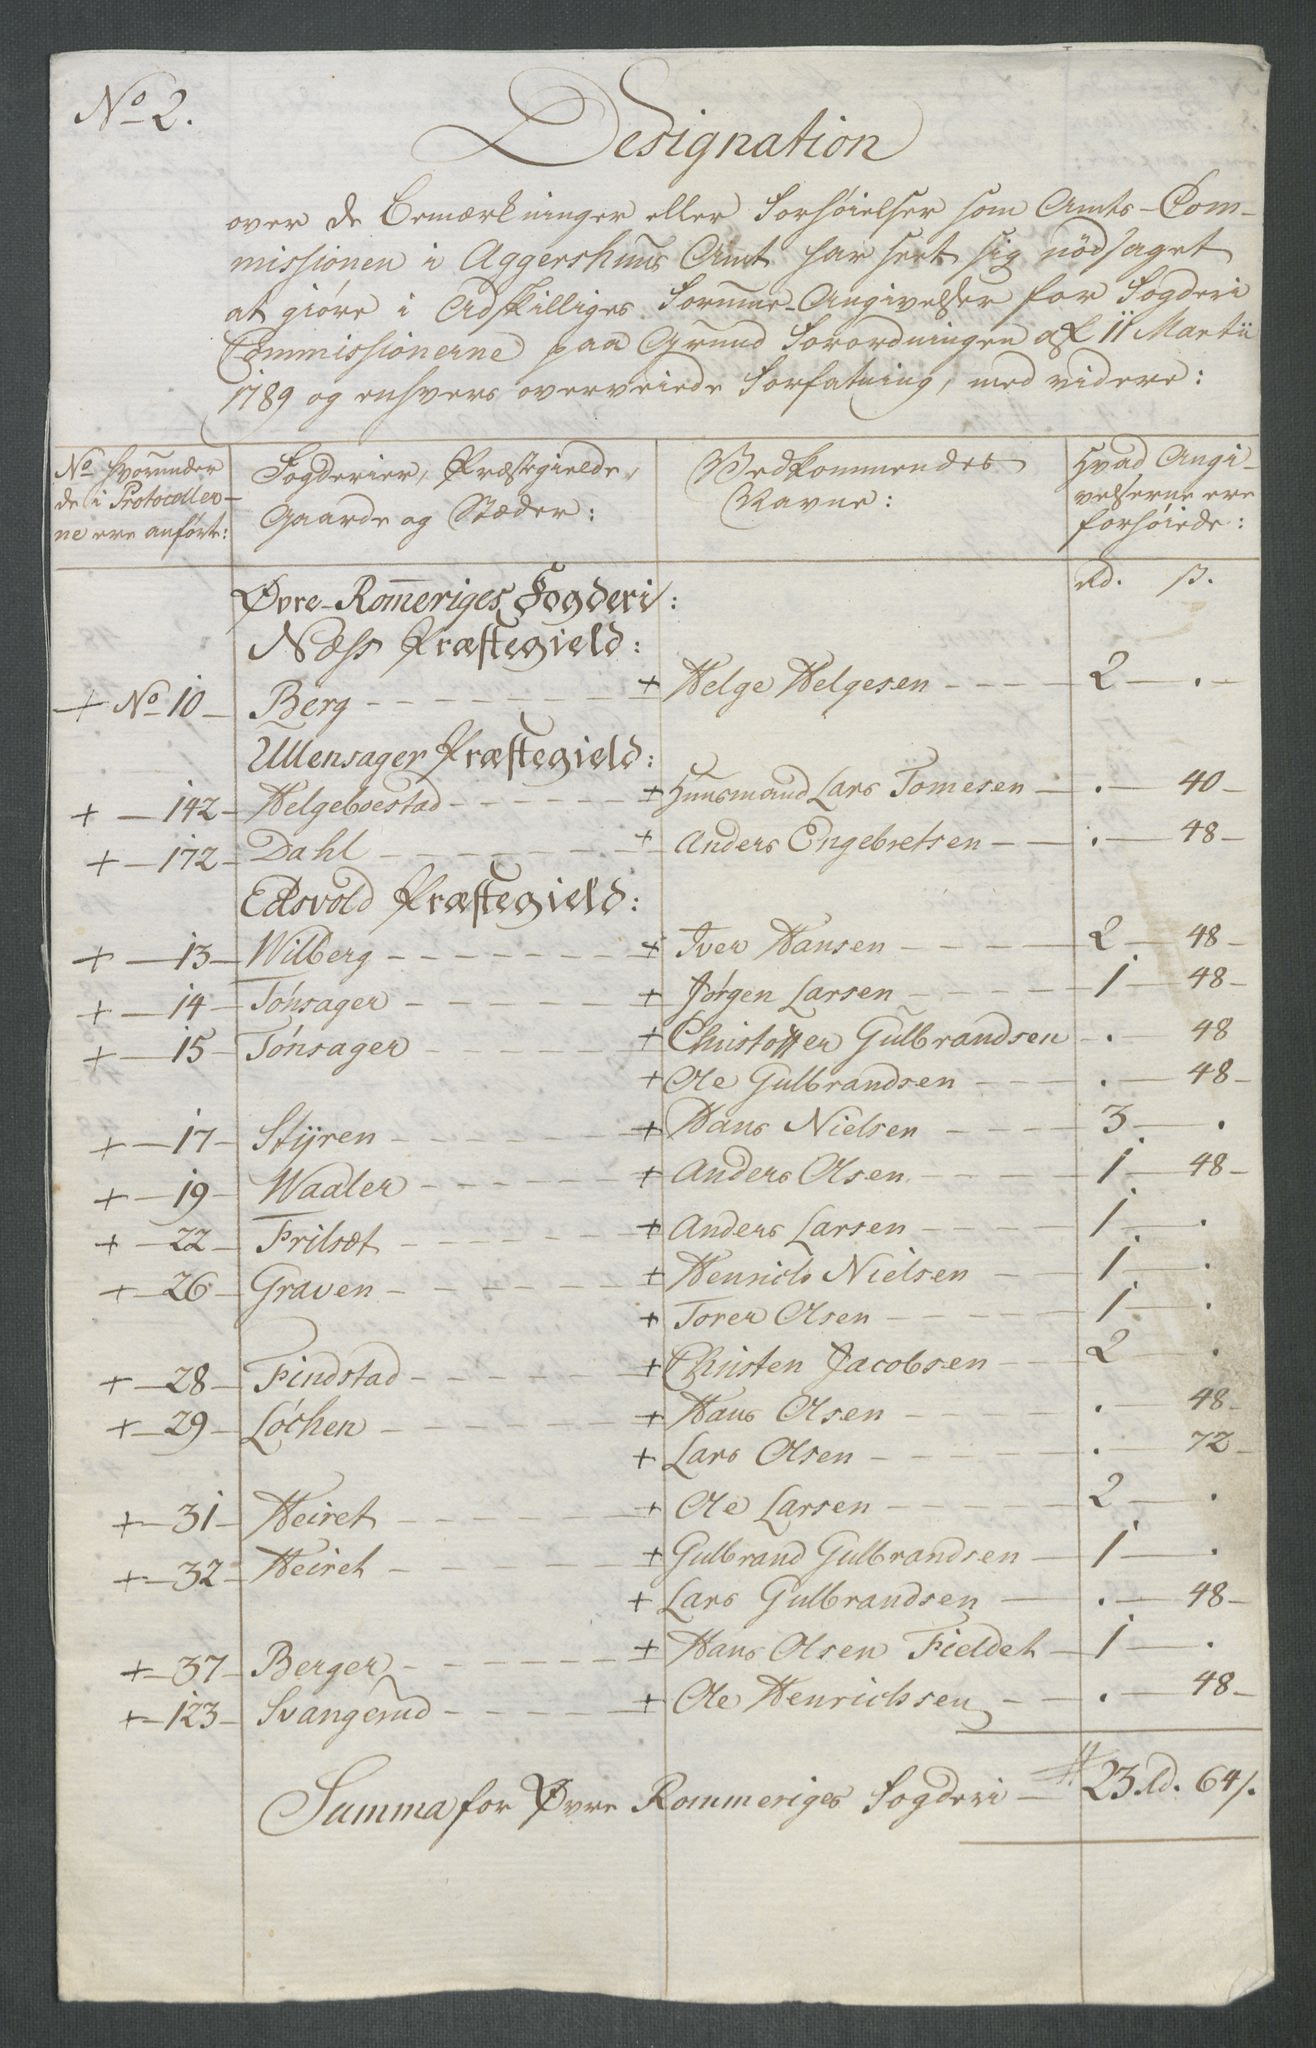 No 2.
Designation
over de Bemærkninger eller Forhøielser som Amts-Com-
missionen i Aggershuus Amt har seet sig nödsaget
at giöre i Adskilliges Formue-Angivelser for Fogderi
Commissionerne paa Grund Forordningen af 11 Martii
1789 og enhvers overveiede Forfatning, med videre:
No hvorunder de i Protocoller- ne ere anförte: Fogderier, Præstegielde, Gaarde og Stæder: Vedkommendes Navne: Hvad Angi- velserne ere forhøiede:
Rd. s.
Øvre-Romeriges Fogderi:
Næss Præstegield:
+ No 10 Berg + Helge Helgesen 2 .
Ullensager Præstegield:
+ 142 Helgeboestad + Huusmand Lars Tomesen . 40
+ 172 Dahl + Anders Engebretsen . 48
Edsvold Præstegield:
+ 13 Wilberg + Iver Hansen 2 48
+ 14 Tónsager + Jórgen Larsen 1 48
+ 15 Tónsager + Christoffer Gulbrandsen . 48
+ Ole Gulbrandsen . 48
+ 17 Styren + Hans Nielsen 3 .
+ 19 Waaler + Anders Olsen 1 48
+ 22 Frilset + Anders Larsen 1 .
+ 26 Graven + Henrich Nielsen 1 .
+ Torer Olsen 1 .
+ 28 Findstad + Christen Jacobsen 2 .
+ 29 Lóchen + Hans Olsen . 48
+ Lars Olsen . 72
+ 31 Heiret + Ole Larsen 2 .
+ 32 Heiret + Gulbrand Gulbrandsen 1 .
+ Lars Gulbrandsen . 48
+ 37 Berger + Hans Olsen Fieldet 1 .
+ 123 Svangerud + Ole Henrichsen . 48
Summa for Øvre Rommeriges Fogderi 23 Rd. 64 s.